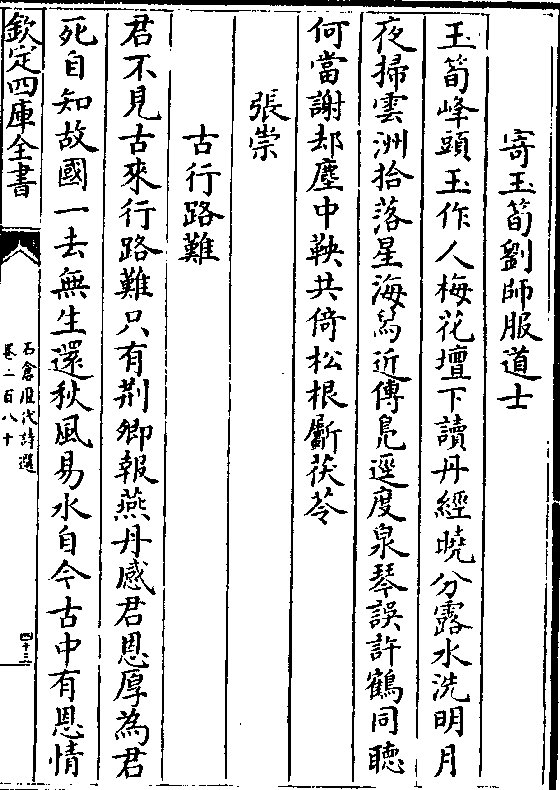 寄玉笥劉師服道士
玉笥峰頭玉作人梅花壇下讀丹經曉分露水洗明月
夜掃雲洲拾落星海舄近傳鳧逕度泉琴誤許鶴同聽
何當謝却塵中鞅共倚松根斸茯苓
張崇
古行路難
君不見古來行路難只有荆卿報燕丹感君恩厚為君
死自知故國一去無生還秋風易水自今古中有恩情
欽定四庫全書
石倉歷代詩選
卷二百八十
四十三